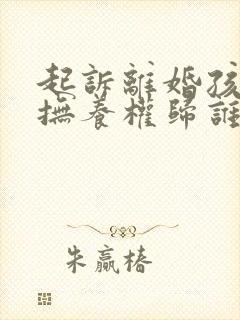 起訴離婚孩
撫養權歸誰
朱贏椿